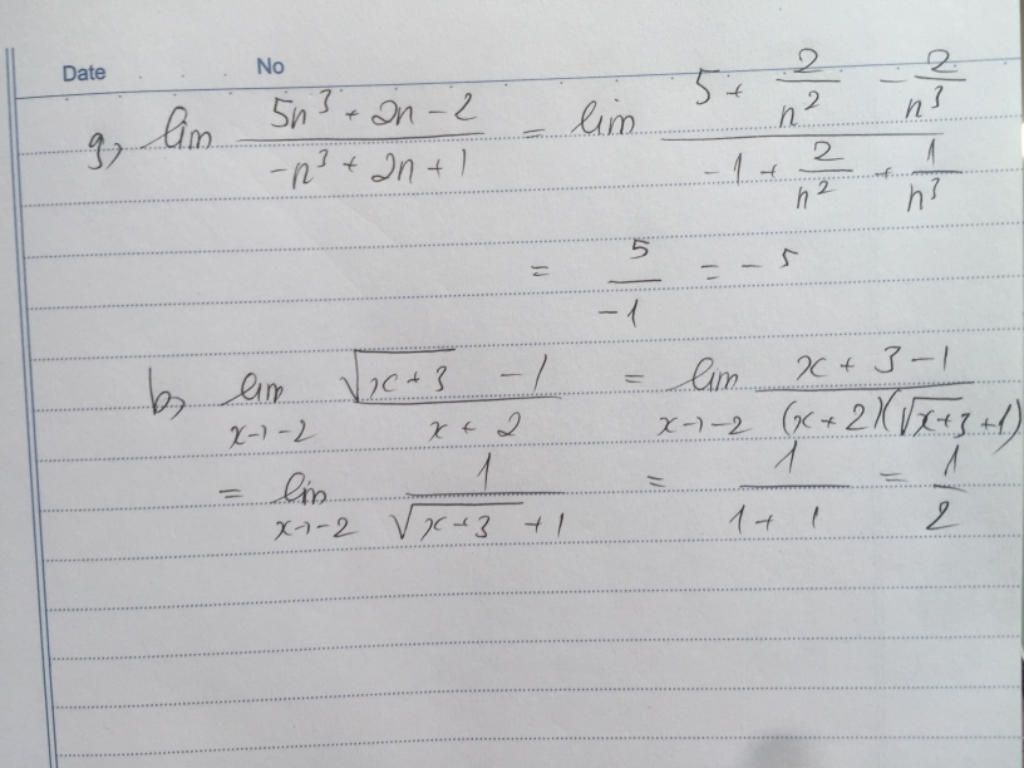 Date No
g, lim (5n³ + 2n - 2)/(-n³ + 2n + 1) = lim (5 + 2/n² - 2/n³)/(-1 + 2/n² + 1/n³)
= 5/-1 = - 5
b, lim x→-2 (√(x+3) - 1)/(x + 2) = lim x→-2 (x + 3 - 1)/((x + 2)(√(x+3) + 1))
= lim x→-2 1/(√(x+3) + 1) = 1/(1 + 1) = 1/2